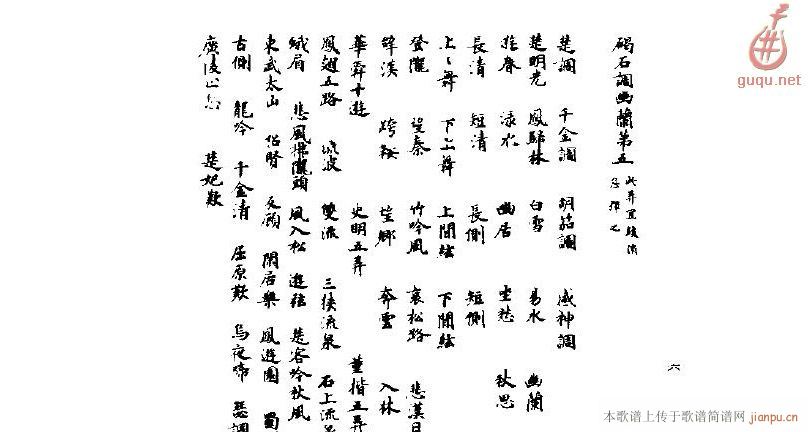 碣石調幽蘭第五 此弄宜緩消息彈之
楚調 千金調 胡笳調 感神調
楚明光 鳳歸林 白雪 易水 幽蘭
遊春 淥水 幽居 坐愁 秋思
長清 短清 長側 短側
上〻舞 下上舞 上間絃 下間絃
登隴 望秦 竹吟風 哀松路 悲漢月
辞漢 跨鞍 望鄉 奔雲 入林
華舜十遊 史明五弄 董揩五弄
鳳翅五路 流波 雙流 三挾流泉 石上流泉
蛾眉 悲風拂隴頭 風入松 遊絃 楚客吟秋風
東武太山 招賢 反顧 閑居樂 鳳遊園 蜀
古側 龍吟 千金清 屈原歎 烏夜啼 瑟調
廣陵止息 楚妃歎
六
guqu.net
本歌谱上传于歌谱简谱网
jianpu.cn